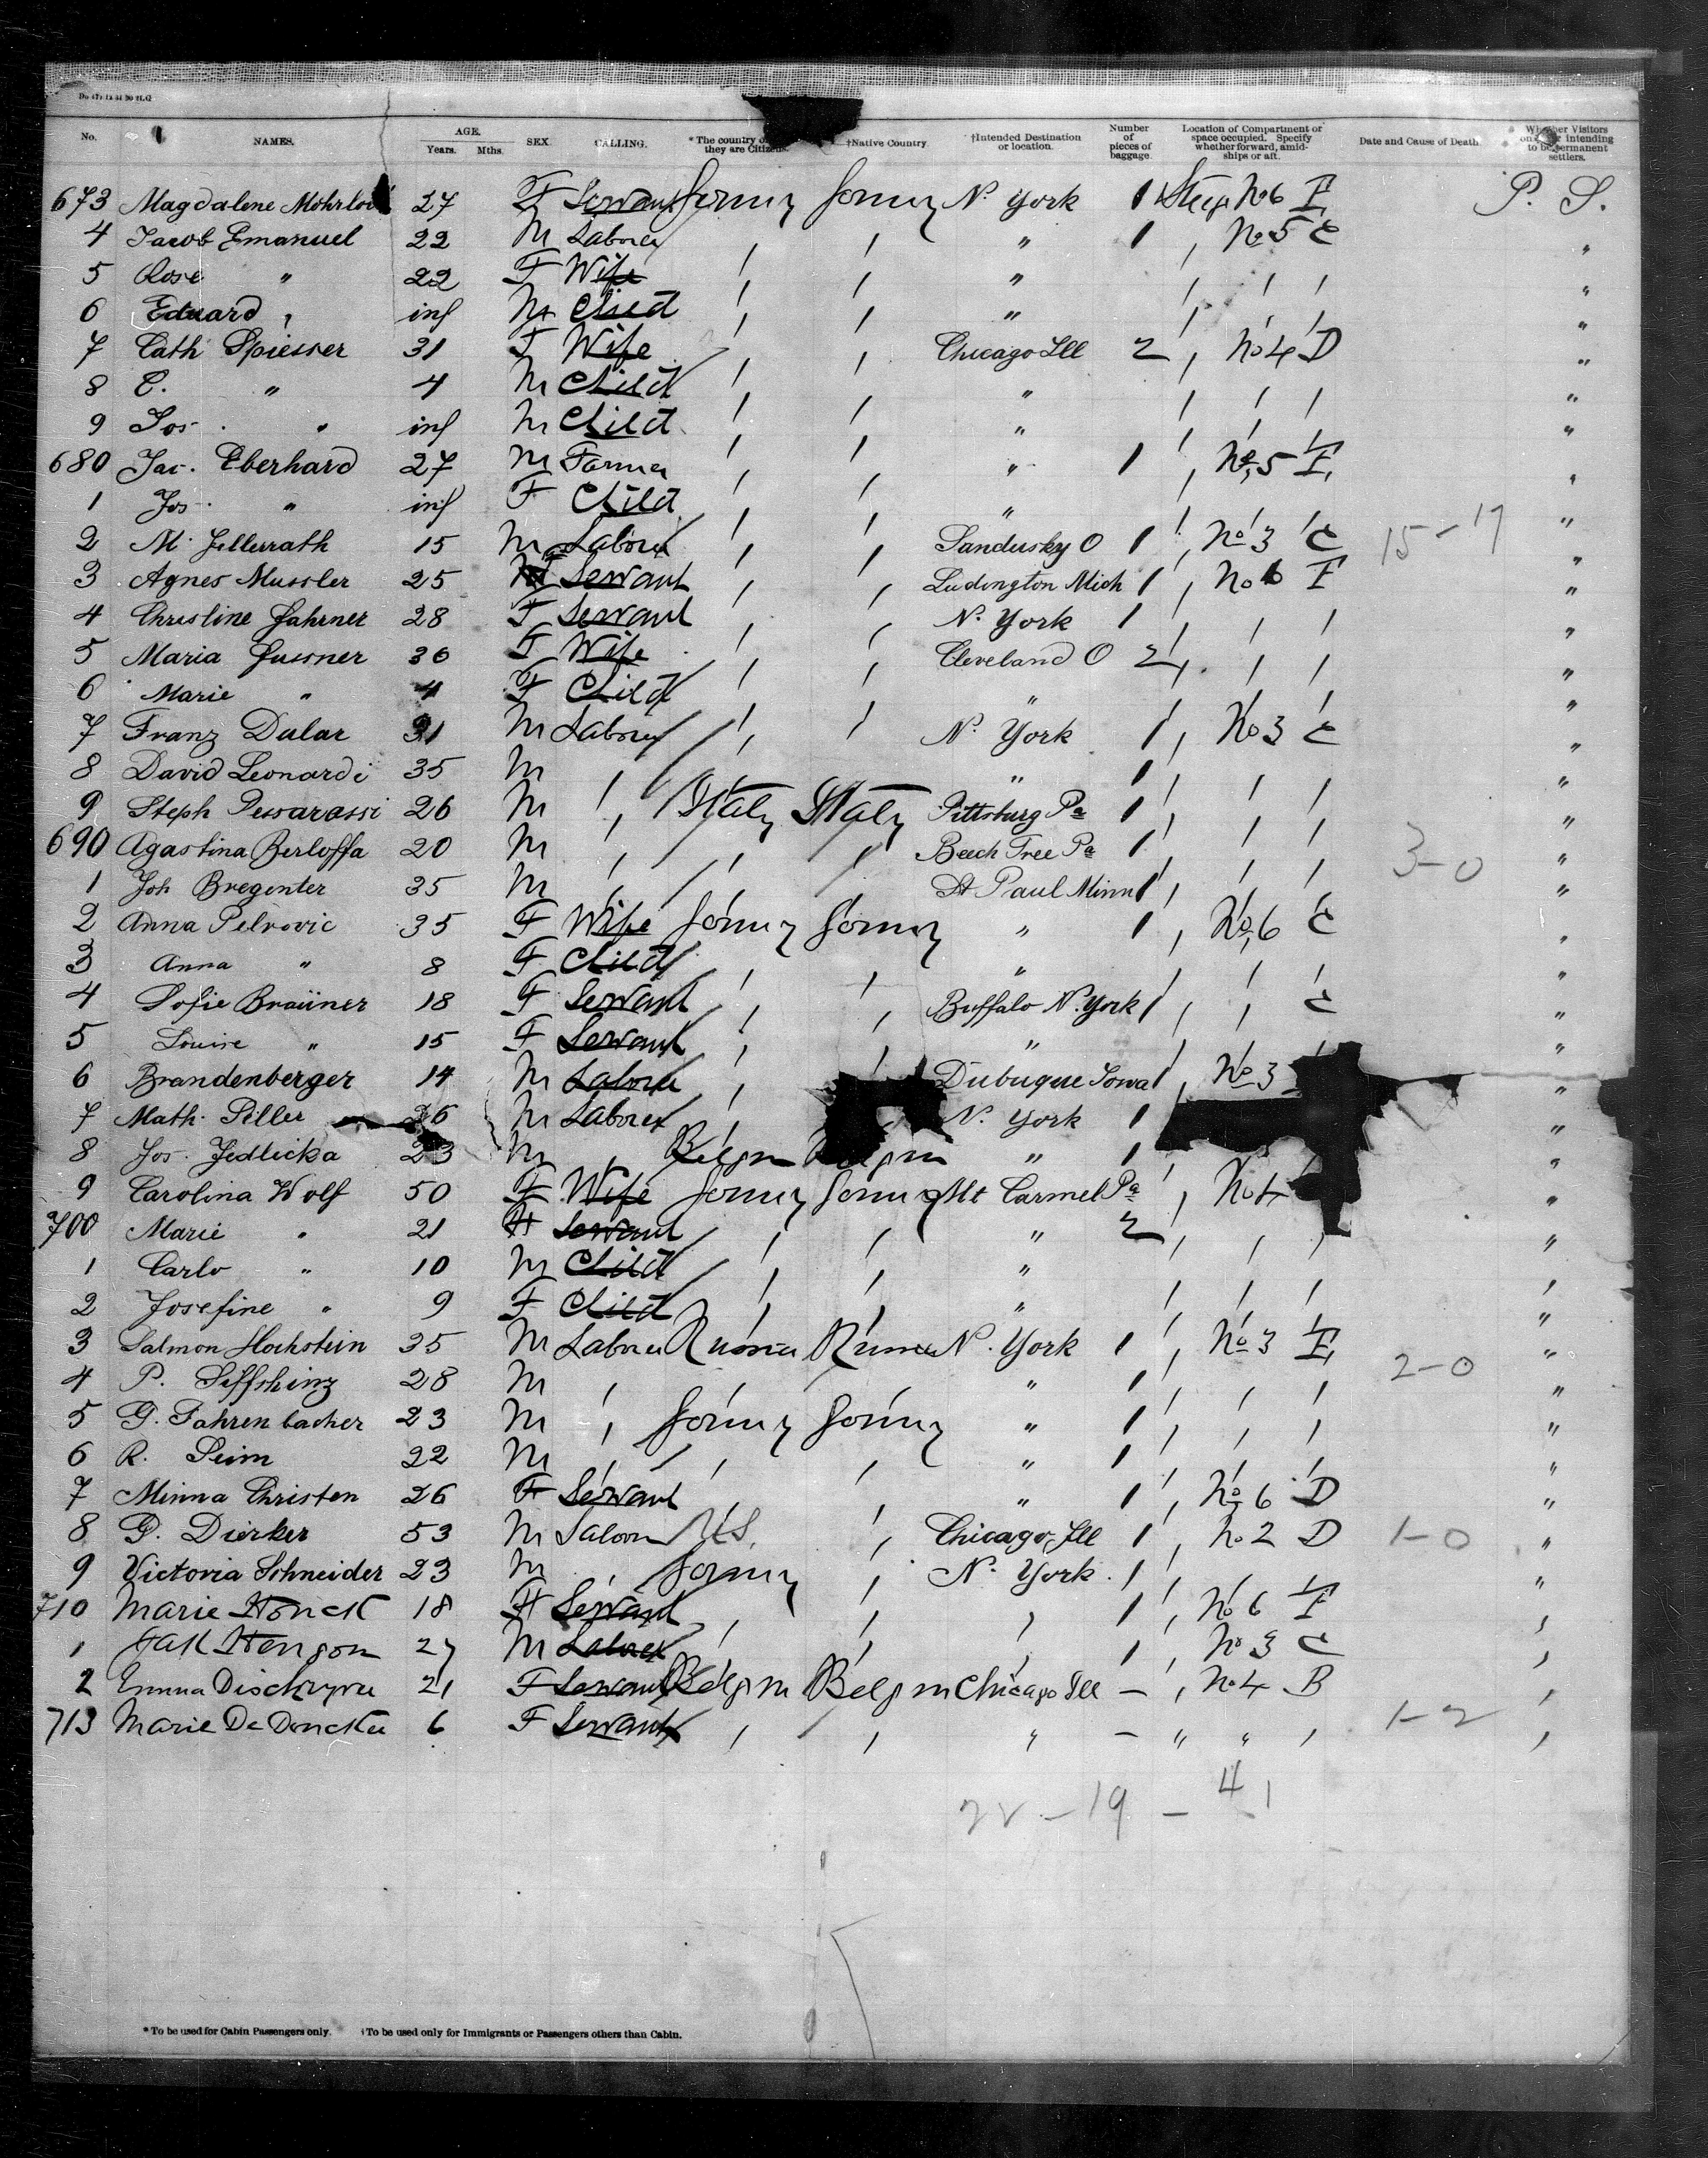 No. NAMES. AGE. Years. Mths. SEX. CALLING. *The country of they are Citizens. †Native Country †Intended Destination or location. Number of pieces of baggage. Location of Compartment or space occupied. Specify whether forward, amidships or aft. Date and Cause of Death. Whether Visitors or intending to be permanent settlers.
673 Magdalene 27 F Servant Germy Germy N. York 1 Steer No 6 E P. S.
4 Jacob Emanuel 22 M Laborer " " " 1 " No 5 C "
5 Rose " 22 F Wife " " " " " " "
6 Eduard " inf M Child " " " " " " "
7 Cath Spiesser 31 F Wife " " Chicago Ill 2 " No 4 D "
8 C. " 4 M Child " " " " " " "
9 Jos. " inf M Child " " " " " " "
680 Jac. Eberhard 27 M Farmer " " " 1 " No 5 E "
1 Jos. " inf F Child " " " " " " "
2 M. Jillerrath 15 M Laborer " " Sandusky O 1 " No 3 C 15-17 "
3 Agnes Mussler 25 F Servant " " Ludington Mich 1 " No 6 E "
4 Christine Fahrner 28 F Servant " " N. York 1 " " " "
5 Maria Gussner 30 F Wife " " Cleveland O 2 " " " "
6 Marie " 4 F Child " " " " " " "
7 Franz Dular 31 M Laborer " " N. York 1 " No 3 C "
8 David Leonardi 35 M " " 1 " " " "
9 Steph 26 M " Italy Italy Pittsburg Pa 1 " " " "
690 Agastina Berloffa 20 M " " " Beech Tree Pa 1 " " " 3-0 "
1 Joh Bregenter 35 M " " " St Paul Minn 1 " " " "
2 Anna Petrovic 35 F Wife Germy Germy " 1 " No 6 C "
3 Anna " 8 F Child " " " " " " "
4 Sofie Braüner 18 F Servant " " Buffalo N. York 1 " " C "
5 Louise " 15 F Servant " " " " "
6 Brandenberger 14 M Laborer " Dubuque Iowa 1 " No 3 "
7 Math. Piller 26 M Laborer " N. York 1 "
8 Jos. Jedlicka 23 M " Belgm Belgm " 1 "
9 Carolina Wolf 50 F Wife Germy Germy Mt Carmel Pa " No 4 "
700 Marie " 21 F Servant " " " 2 " " " "
1 Carlo " 10 M Child " " " " " " "
2 Josefine " 9 F Child " " " " " " "
3 Salmon Hochstein 35 M Laborer Russia Russia N. York 1 " No 3 E "
4 P. Siffshinz 28 M " " " " 1 " " " 2-0 "
5 G. Fahrenbacher 23 M " Germy Germy " 1 " " " "
6 R. Seim 22 M " " " " 1 " " " "
7 Minna Christen 26 F Servant " " " 1 " No 6 D "
8 G. Dierker 53 M Saloon U.S. " Chicago, Ill 1 " No 2 D 1-0 "
9 Victoria Schneider 23 M " Germy " N. York 1 " " " "
710 Marie Honck 18 F Servant " " " 1 " No 6 E "
1 Jak Hengon 27 M Laborer " " " 1 " No 3 C "
2 Emma 21 F Servant Belgm Belgm Chicago Ill - " No 4 B "
713 Marie De Doncker 6 F Servant " " " - " " " 1-2 "
22 - 19 - 41
* To be used for Cabin Passengers only. †To be used only for Immigrants or Passengers others than Cabin.